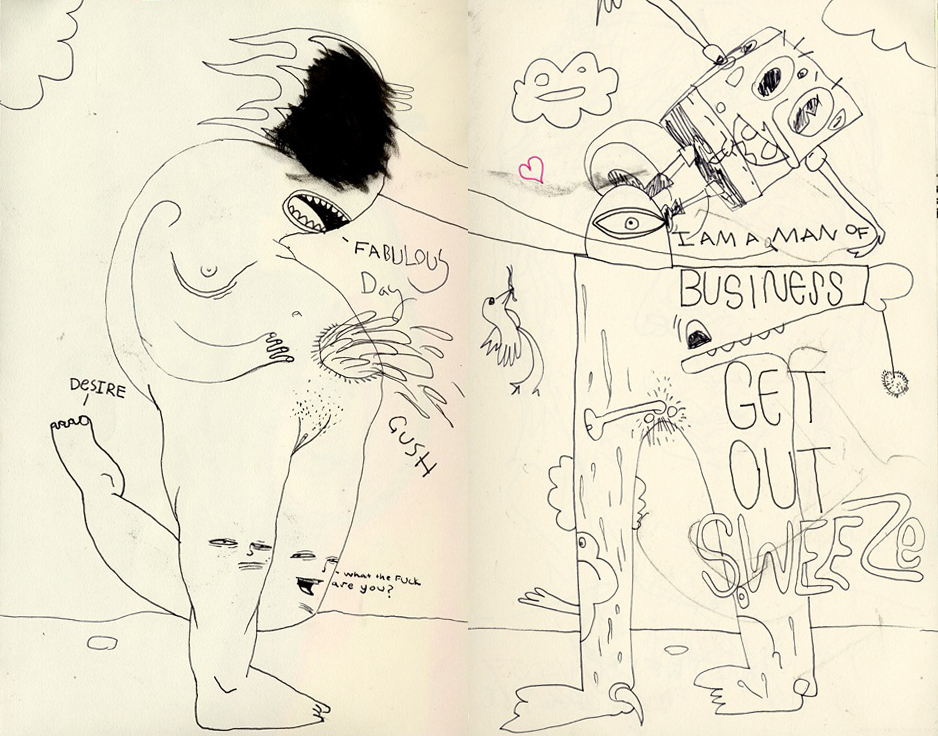 FABULOUS
Day
DeSIRE
GUSH
what the FUCK
are you?
I AM A MAN OF
BUSINESS
GET
OUT
SWEEZe